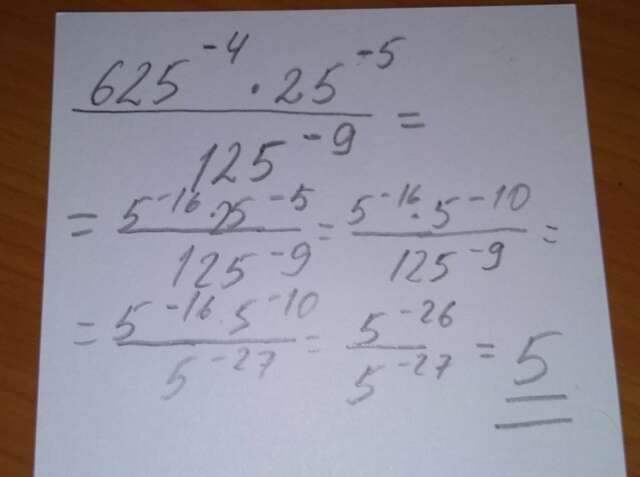 625⁻⁴ · 25⁻⁵ / 125⁻⁹ =
= 5⁻¹⁶ · 25⁻⁵ / 125⁻⁹ = 5⁻¹⁶ · 5⁻¹⁰ / 125⁻⁹ =
= 5⁻¹⁶ · 5⁻¹⁰ / 5⁻²⁷ = 5⁻²⁶ / 5⁻²⁷ = 5